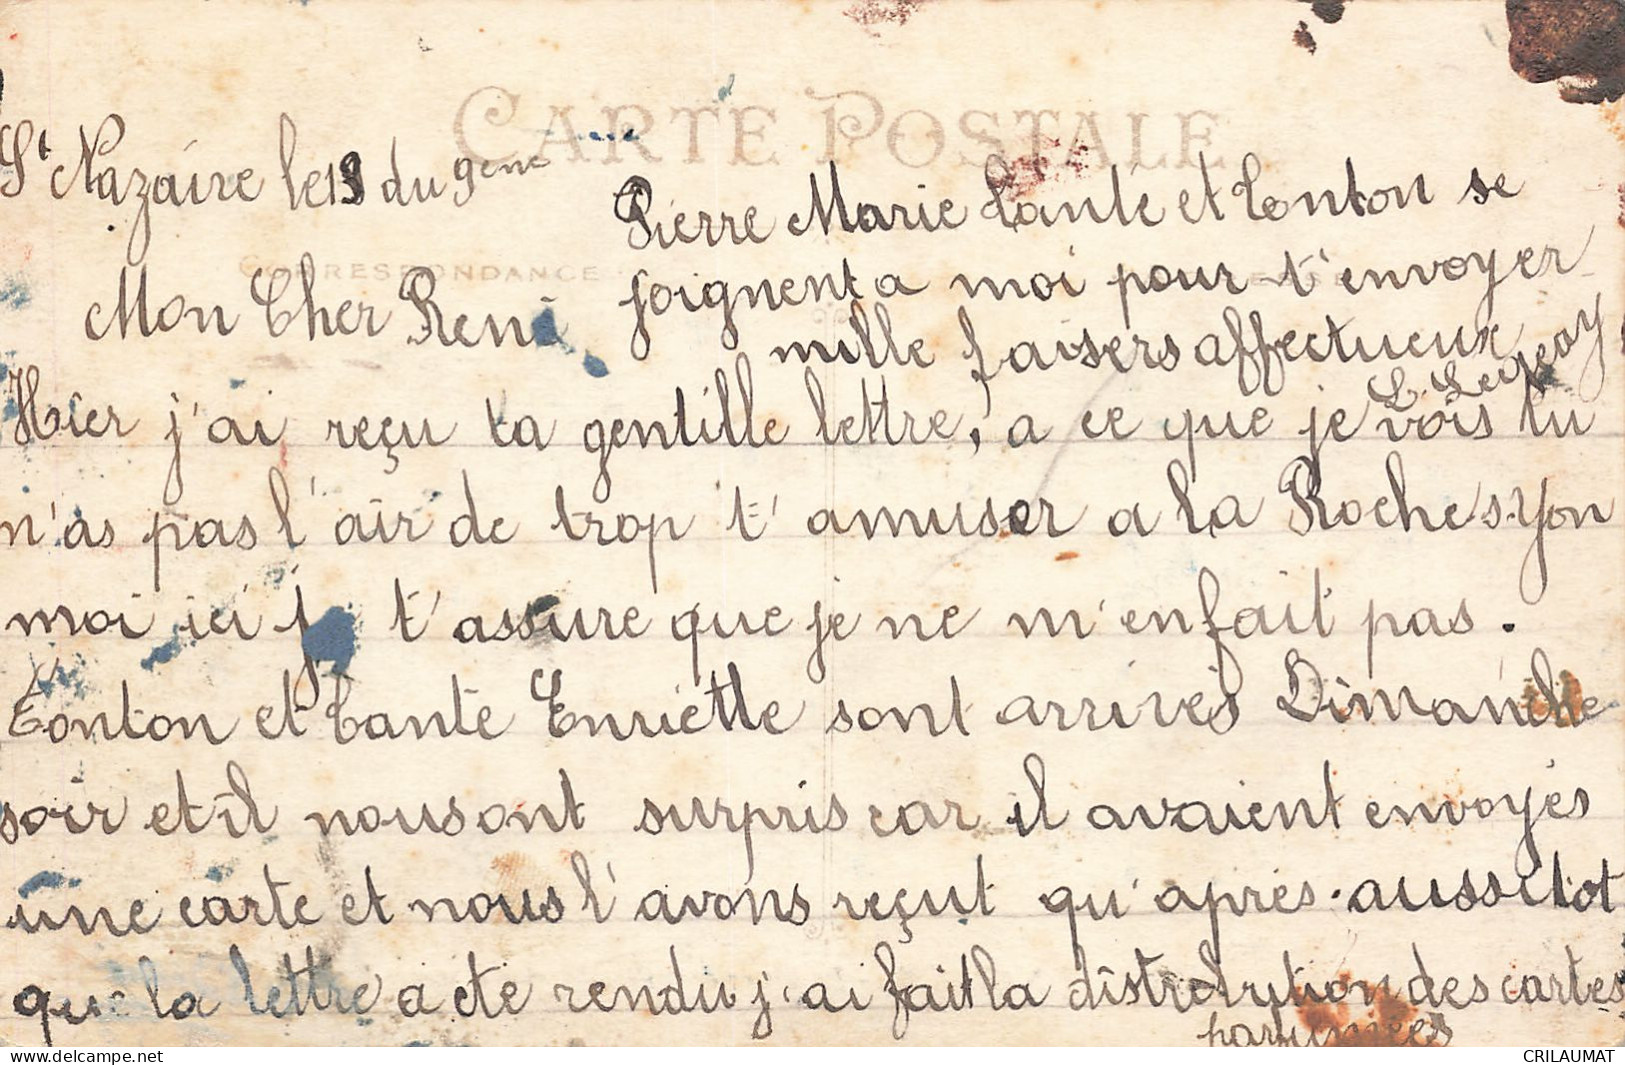 CARTE POSTALE
CORRESPONDANCE
St Nazaire le 13 du 9eme
Mon Cher René
Hier j'ai reçu ta gentille lettre, a ce que je vois tu
n'as pas l'air de trop t'amuser a la Roche s Yon
moi ici j t'assure que je ne m'en fait pas.
Tonton et tante Enriette sont arrivés Dimanche
soir et il nous ont surpris car il avaient envoyés
une carte et nous l'avons reçut qu'après. aussitot
que la lettre a été rendu j'ai fait la distribution des cartes
parfumées
Pierre Marie tante et tonton se
joignent a moi pour t'envoyer
mille baisers affectueux
CRILAUMAT